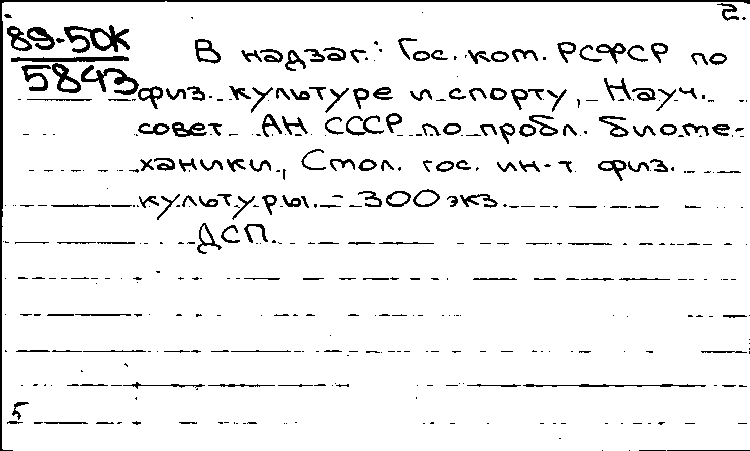 2.
89-50К
5843
В надзаг.: Гос. ком. РСФСР по
физ. культуре и спорту, Науч.
совет АН СССР по пробл. биоме-
ханики, Смол. гос. ин-т физ.
культуры. - 300 экз.
ДСП.
5